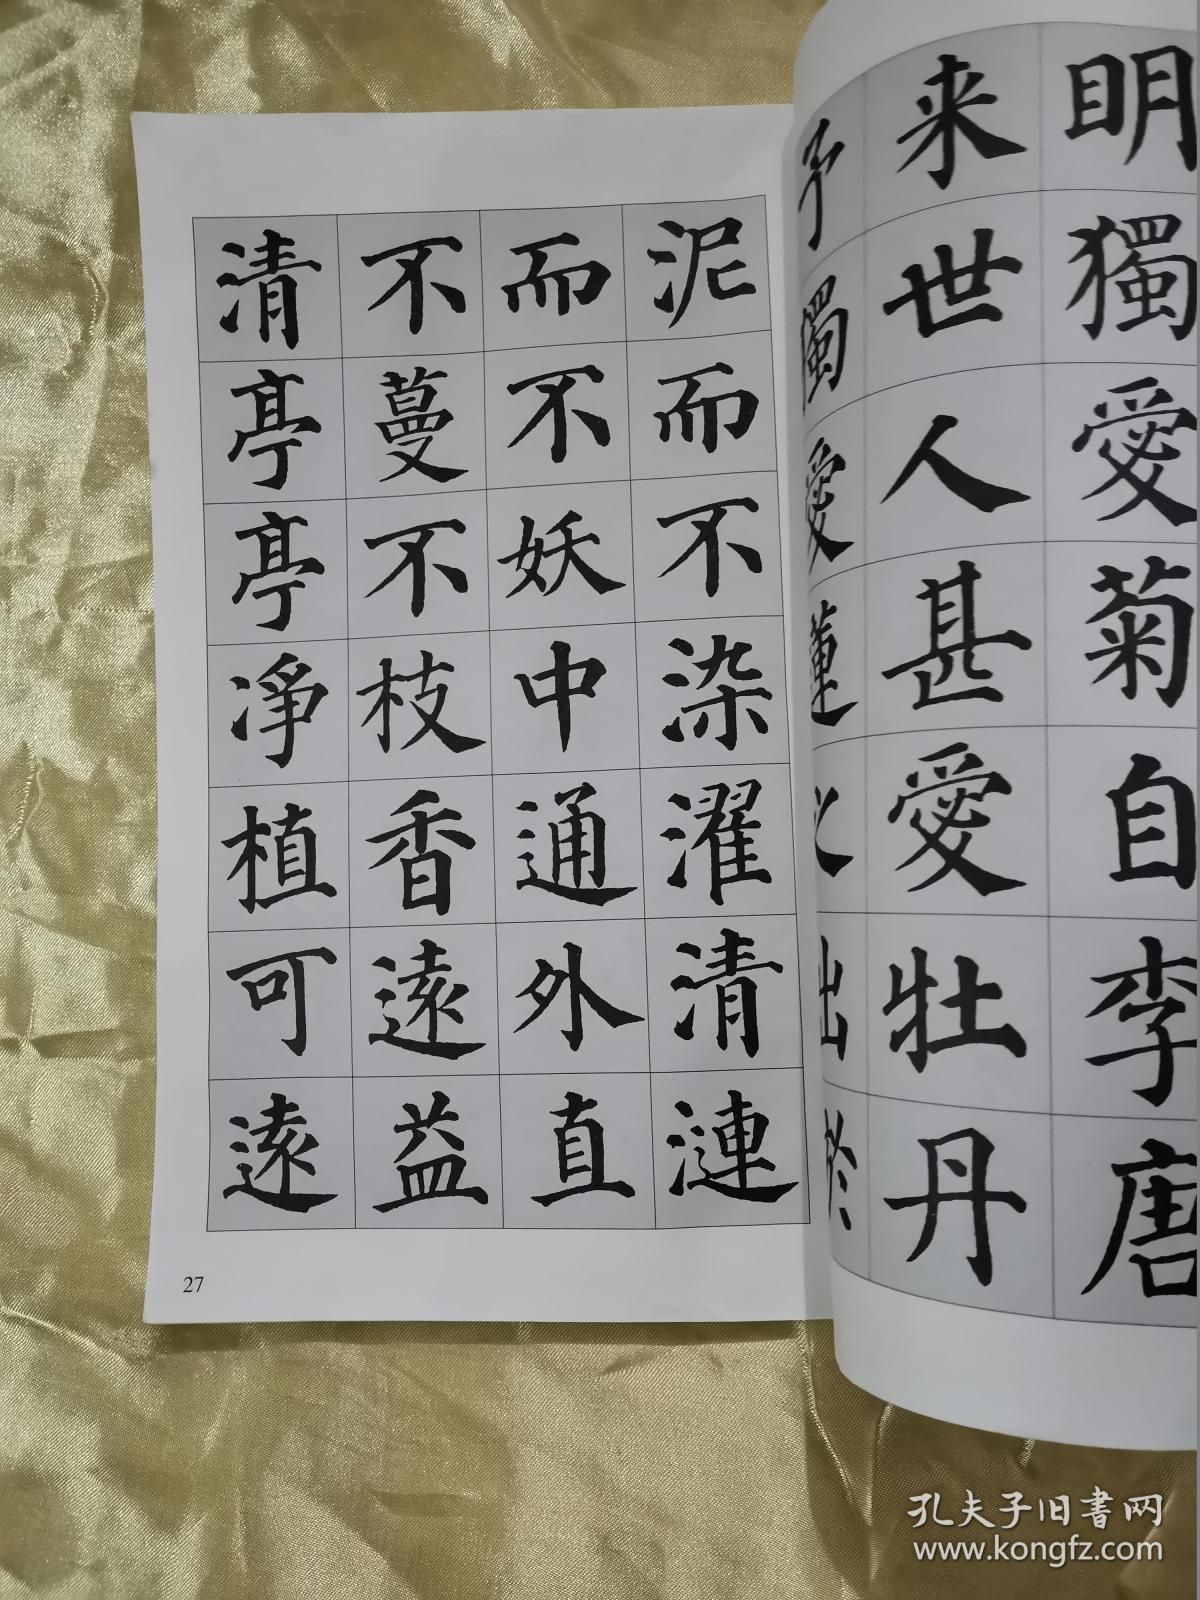 明獨愛菊自李唐
来世人甚愛牡丹
予獨愛蓮之出於
泥而不染濯清漣
而不妖中通外直
不蔓不枝香遠益
清亭亭凈植可遠
27
孔夫子旧書网
www.kongfz.com